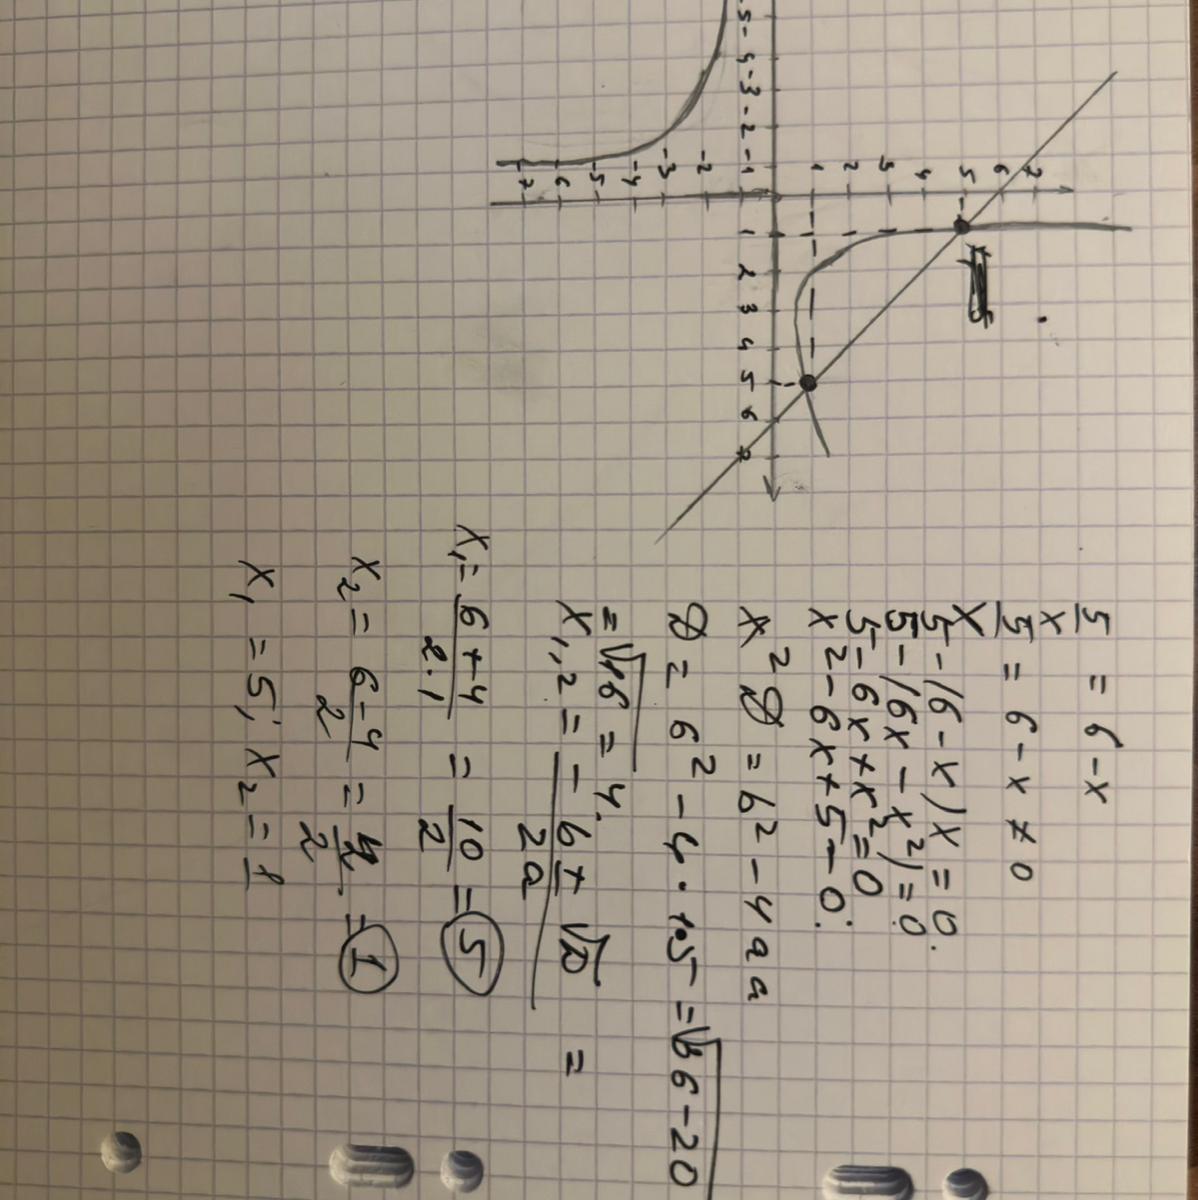 5/x = 6 - x
5/x = 6 - x ≠ 0
5 - (6 - x) x = 0.
5 - (6x - x²) = 0
5 - 6x + x² = 0
x² - 6x + 5 - 0:
x² D = b² - 4 a a
D = 6² - 4 · 1·5 = √36 - 20
= √16 = 4.
x₁,₂ = (- b ± √D)/2a =
x₁ = (6 + 4)/(2 · 1) = 10/2 = 5
x₂ = (6 - 4)/2 = 2/2 = 1
x₁ = 5; x₂ = 1
7
6
5
4
3
2
1
-1
-2
-3
-4
-5
-6
-7
-5 -4 -3 -2 -1 1 2 3 4 5 6 7